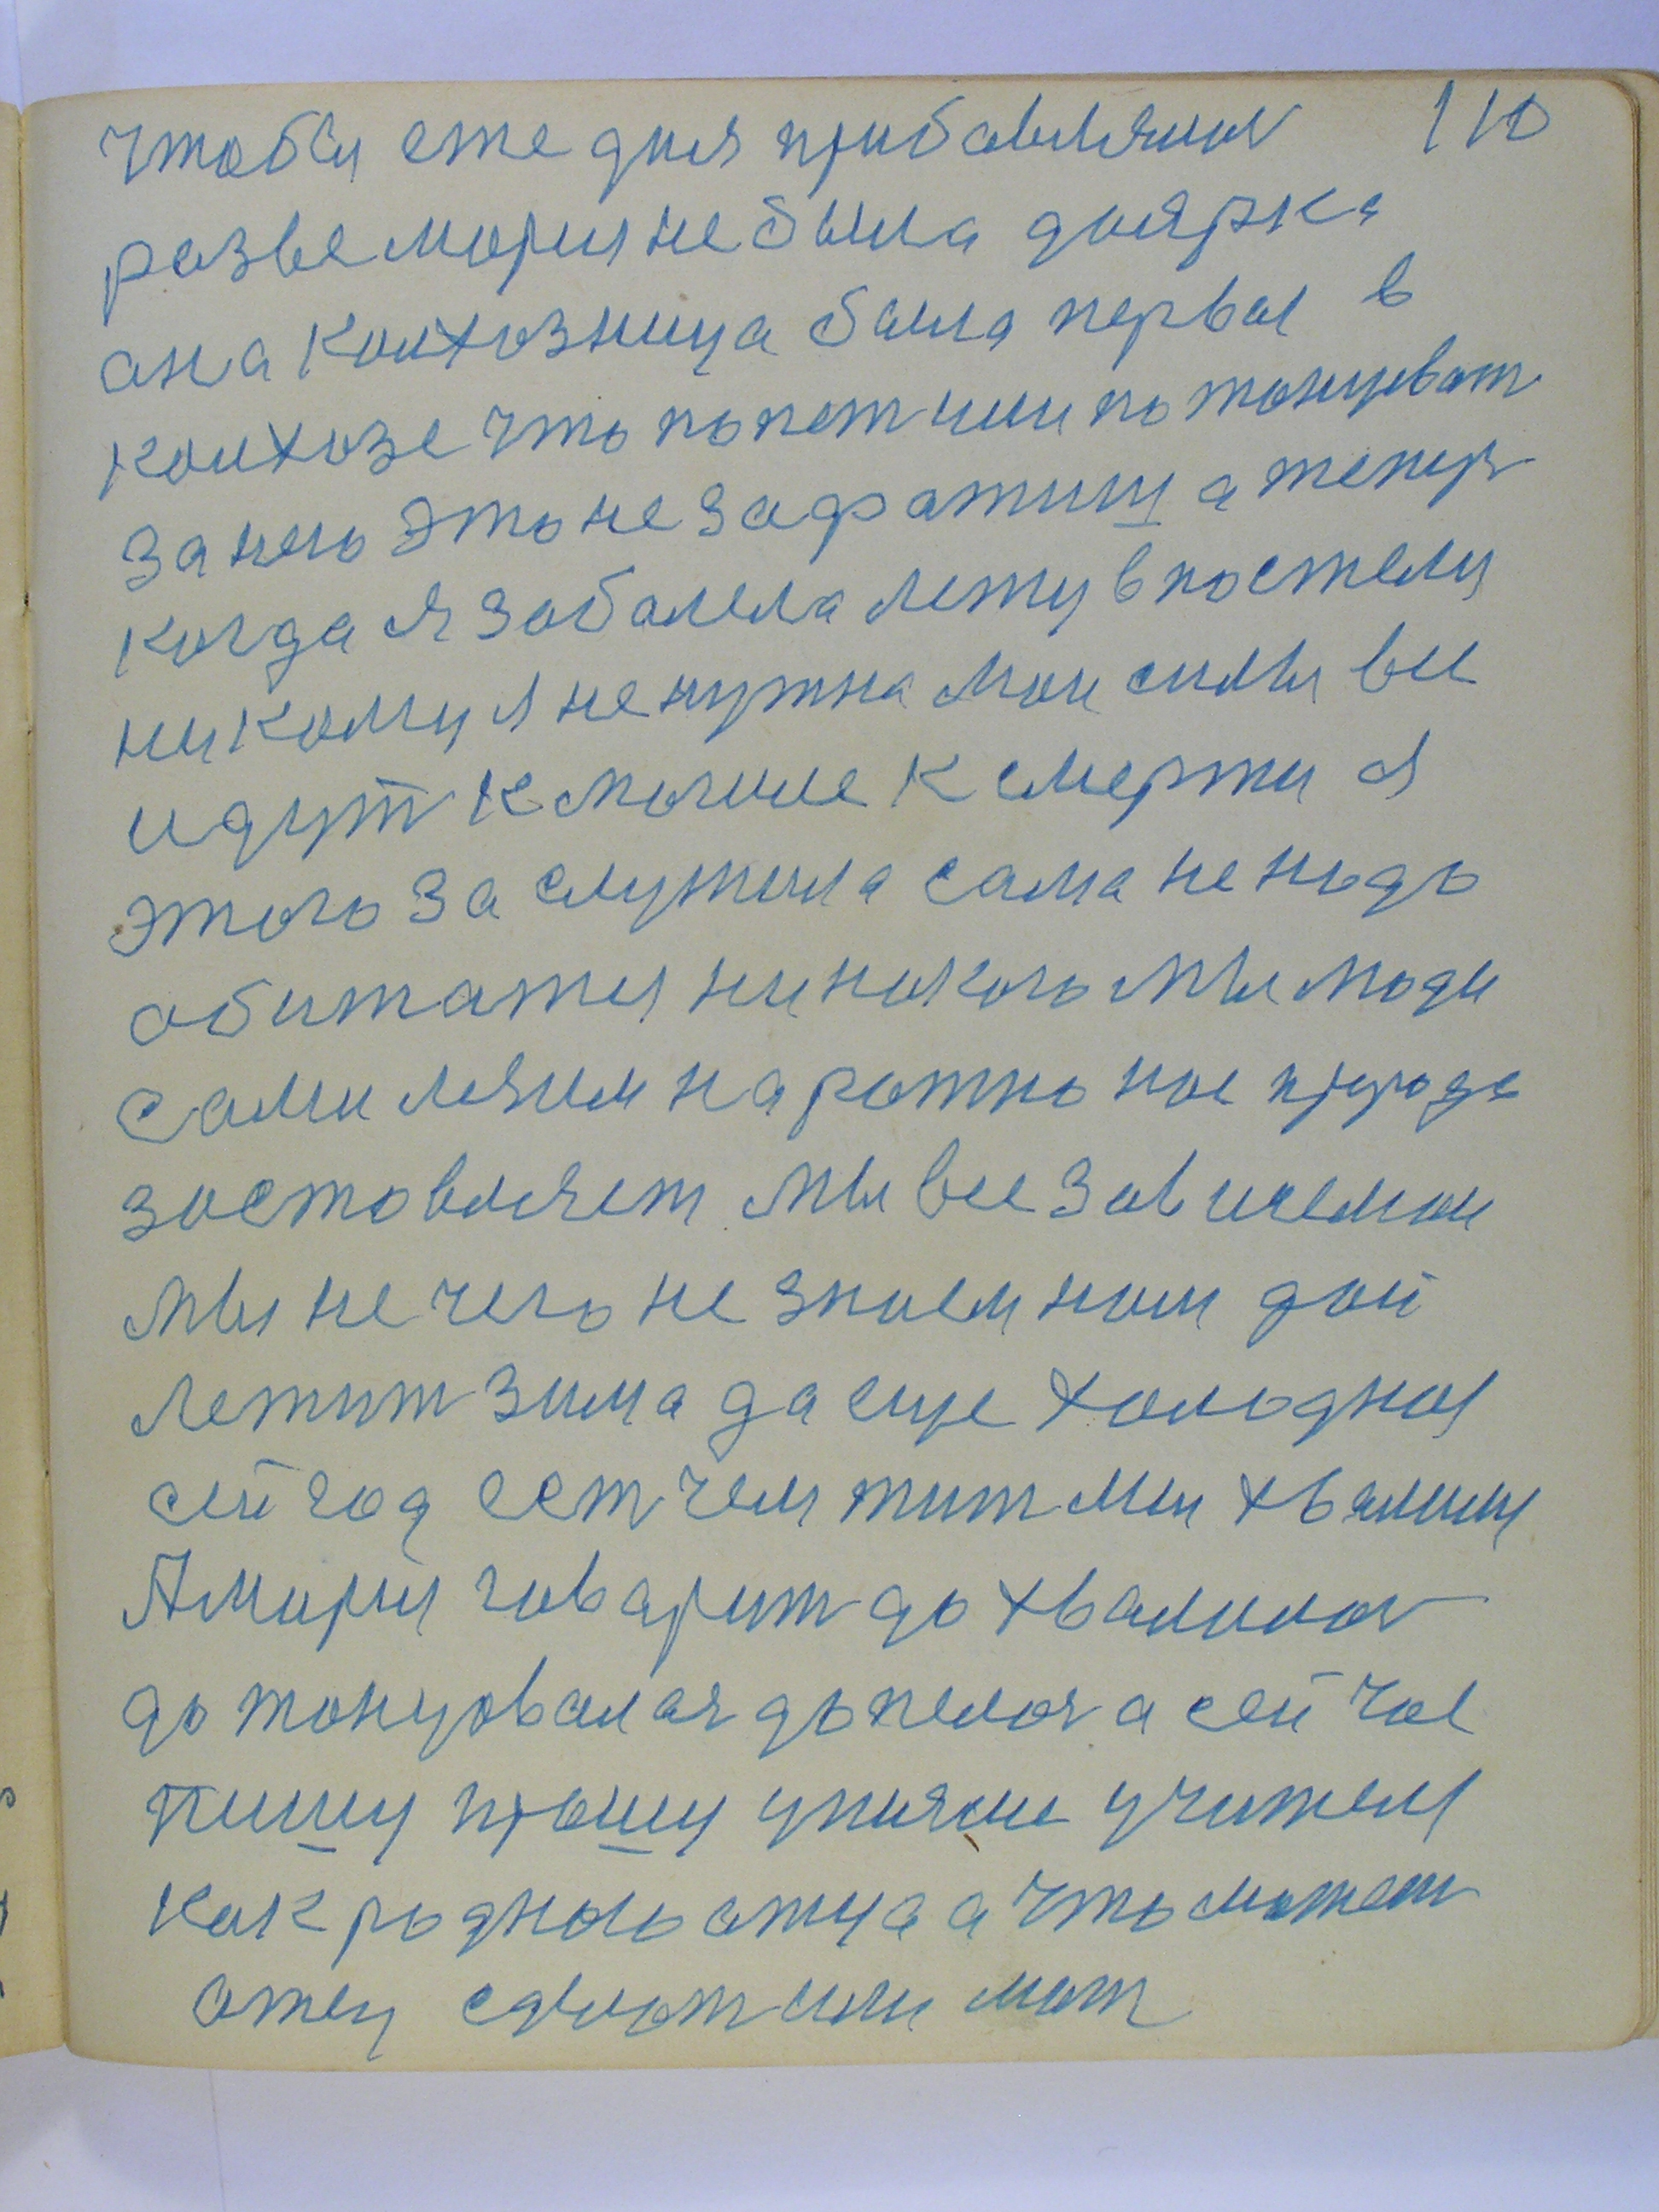 110
чтобы еже дня прибавлялос
разве мория не была доярка
она колхозница была первая в
колхозе что попет или по танцеват
за нею это не зафатиш а тепер
когда я заболела лежу в постели
ни кому я не нужна мои силы все
идут к могиле к смерти я
этого за служила сама не надо
обижатя ни накого мы люди
сами лезим на рожно нас природа
заставляет мы все зависемои
мы не чего не знаем нам дай
лежит зима да еще холодная
сей год сет чем жит мы хвалиш
А мория говарит до хвалилас
до танцовалас допелас а сей час
пишу прошу умаляю учителя
как родного отца а что может
отец сделат или мат